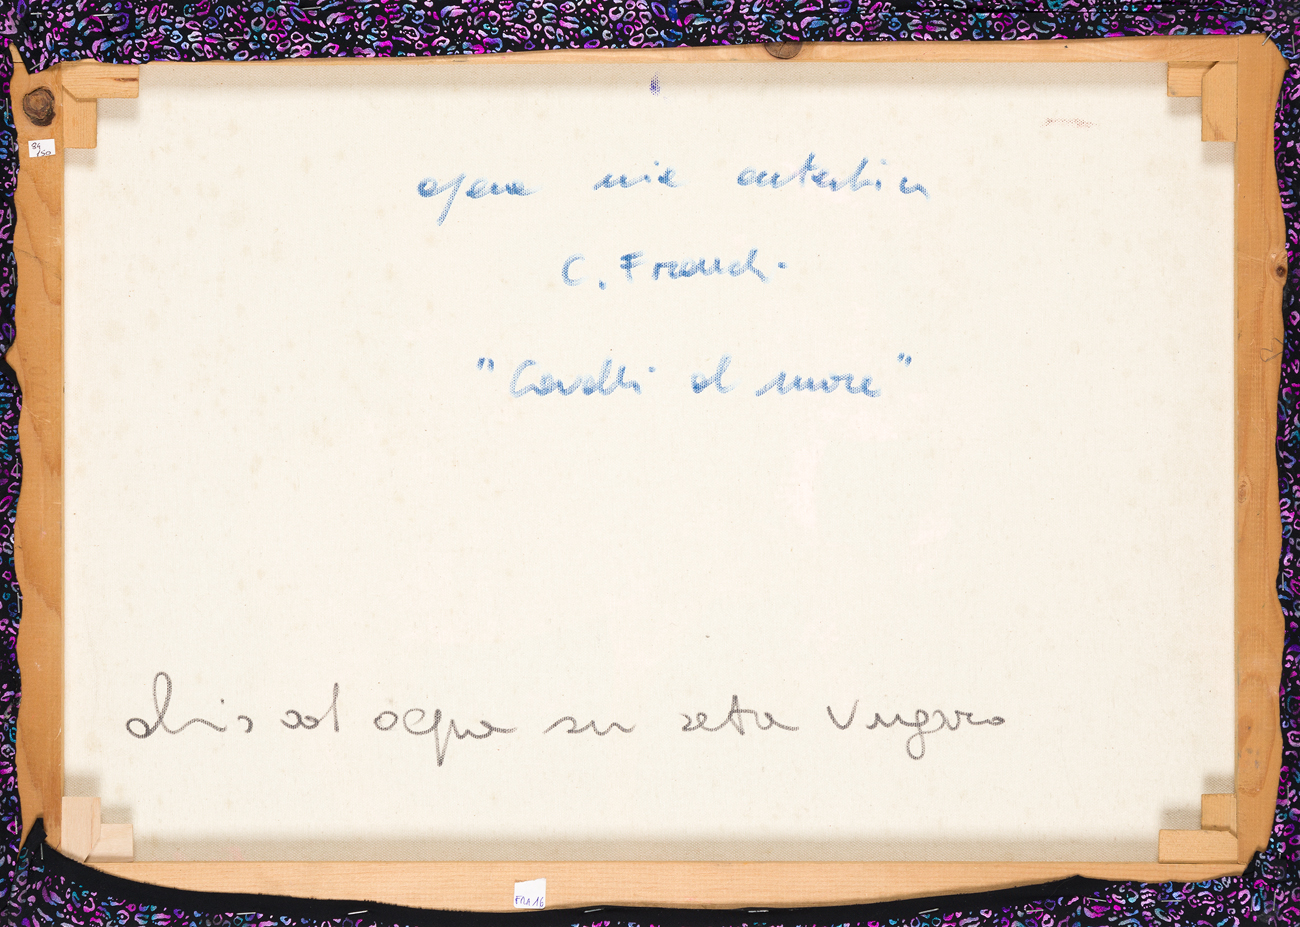 84
/50
opera mia autentica
C. Franch.
"Cavalli al mare"
olio ad acqua su seta Ungaro
FRA 16